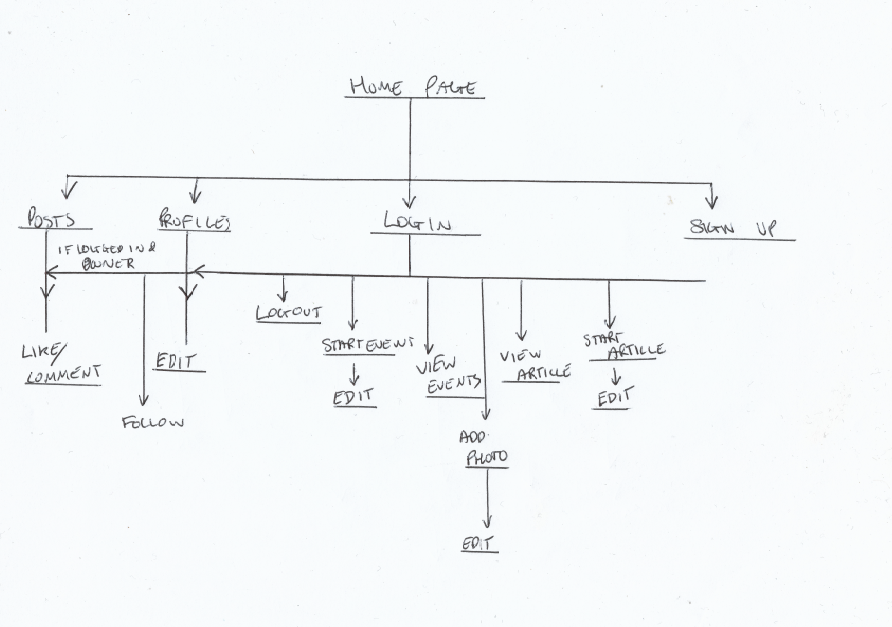 HOME PAGE
POSTS
PROFILES
LOGIN
SIGN UP
IF LOGGED IN &
OWNER
LOGOUT
LIKE/
COMMENT
EDIT
FOLLOW
START EVENT
EDIT
VIEW
EVENTS
ADD
PHOTO
EDIT
VIEW
ARTICLE
START
ARTICLE
EDIT